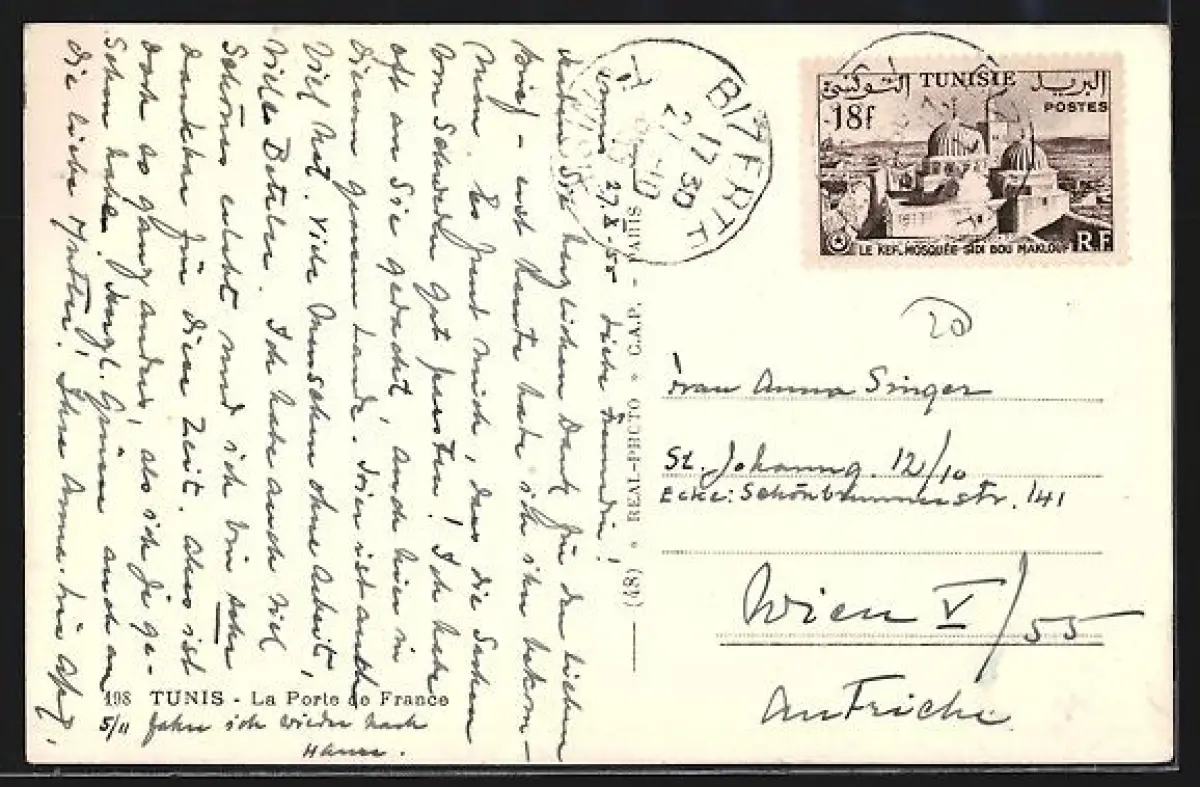 Tunis 27.X.55 Liebe Freundin!
Haben Sie herzlichen Dank für den lieben
Brief - erst heute habe ich ihn bekom-
men. Es freut mich, dass die Sachen
von Schweden gut passten! Ich habe
oft an Sie gedacht, auch hier in
diesem Lande. Hier ist auch
viel Not. Viele Menschen ohne Arbeit,
viele Bettler. Ich habe auch viel
Schönes erlebt und ich bin sehr
dankbar für diese Zeit. Alles ist
doch so ganz anders, als ich je ge-
sehen habe. Grüsse auch an
die liebe Mutter! Ihre Anna
198 TUNIS - La Porte de France
5/11 fahre ich wieder nach
Hause.
(48) • REAL-PHOTO • C.A.P. - PARIS
BIZERTE
17 30
TUNISIE
البريد التونسي
POSTES
18f
LE KEF, MOSQUÉE SIDI BOU MAKLOUF
R F
20
Frau Anna Singer
St. Johanng. 12/10
Ecke: Schönbrunnerstr. 141
Wien V/55
Autriche